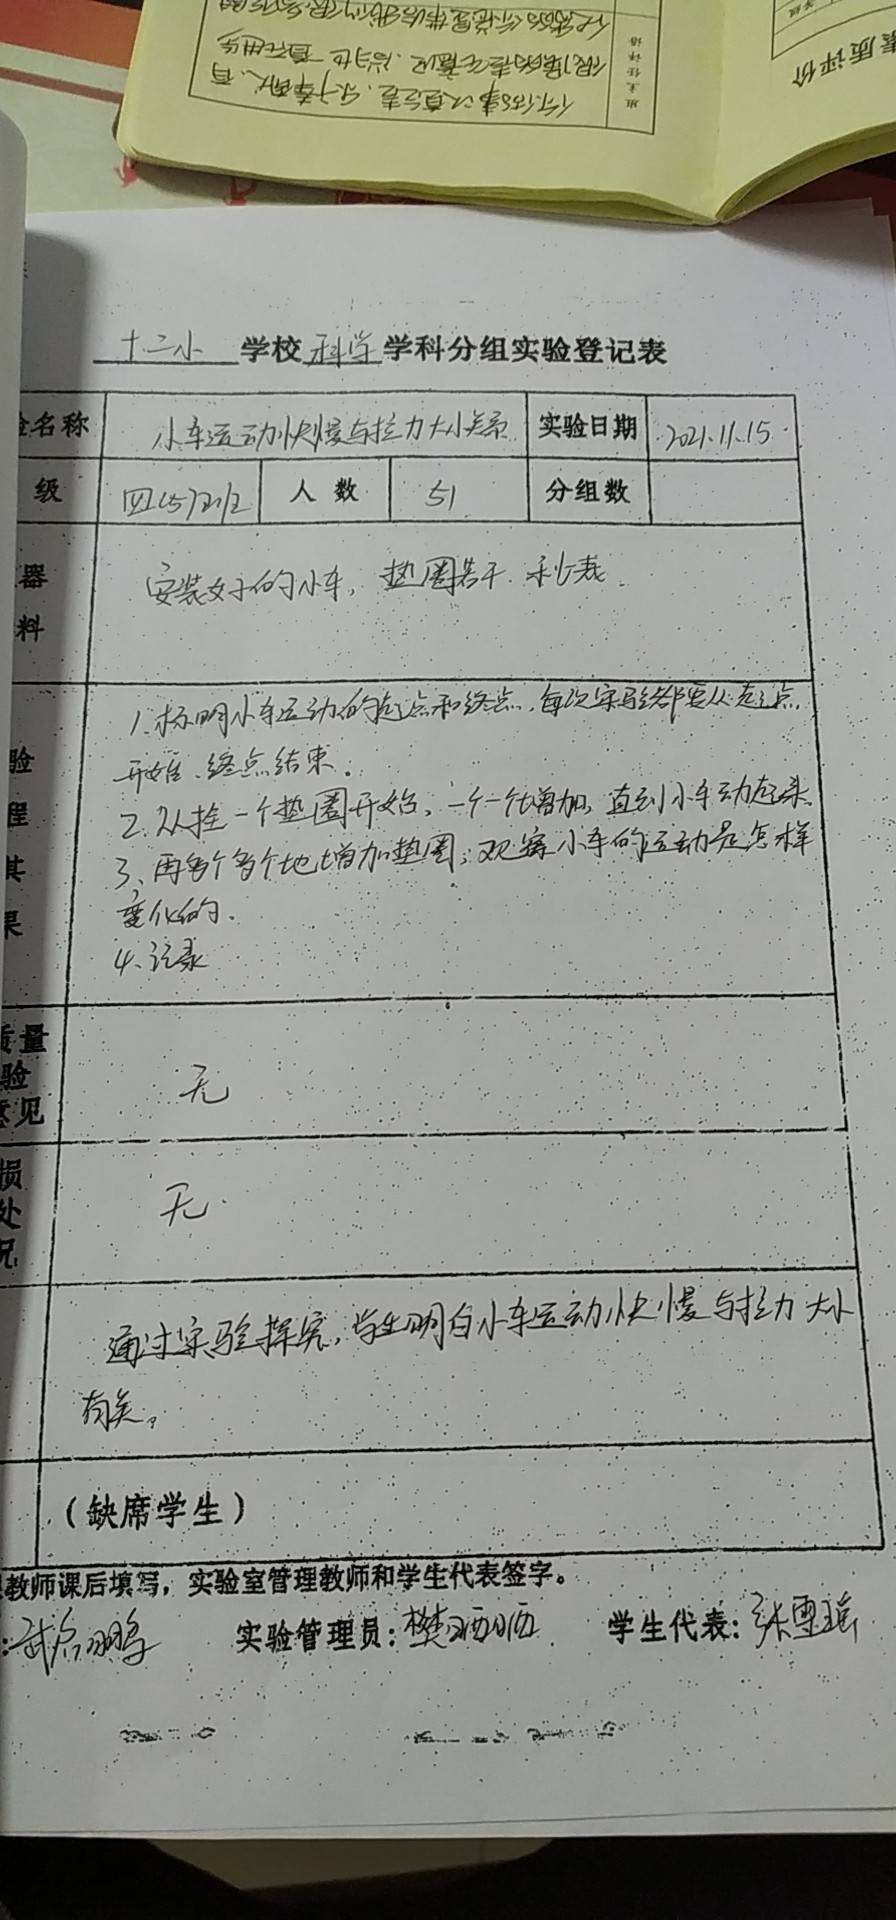 素质评价
班主任评语
十二小 学校 科学 学科分组实验登记表
名称 小车运动快慢与拉力大小关系 实验日期 2021.11.15
级 四(5)班 人数 51 分组数
器 安装好的小车, 垫圈若干. 秒表.
料
1.标明小车运动的起点和终点,每次实验都要从起点
验 开始、终点结束。
程 2.从挂一个垫圈开始,一个一个增加,直到小车动起来.
其 3、再多个多个地增加垫圈;观察小车的运动是怎样
果 变化的.
4、记录
质量
验 无
意见
损
处 无.
况
通过实验探究,学生明白小车运动快慢与拉力大小
有关。
(缺席学生)
教师课后填写,实验室管理教师和学生代表签字。
: 实验管理员: 学生代表: